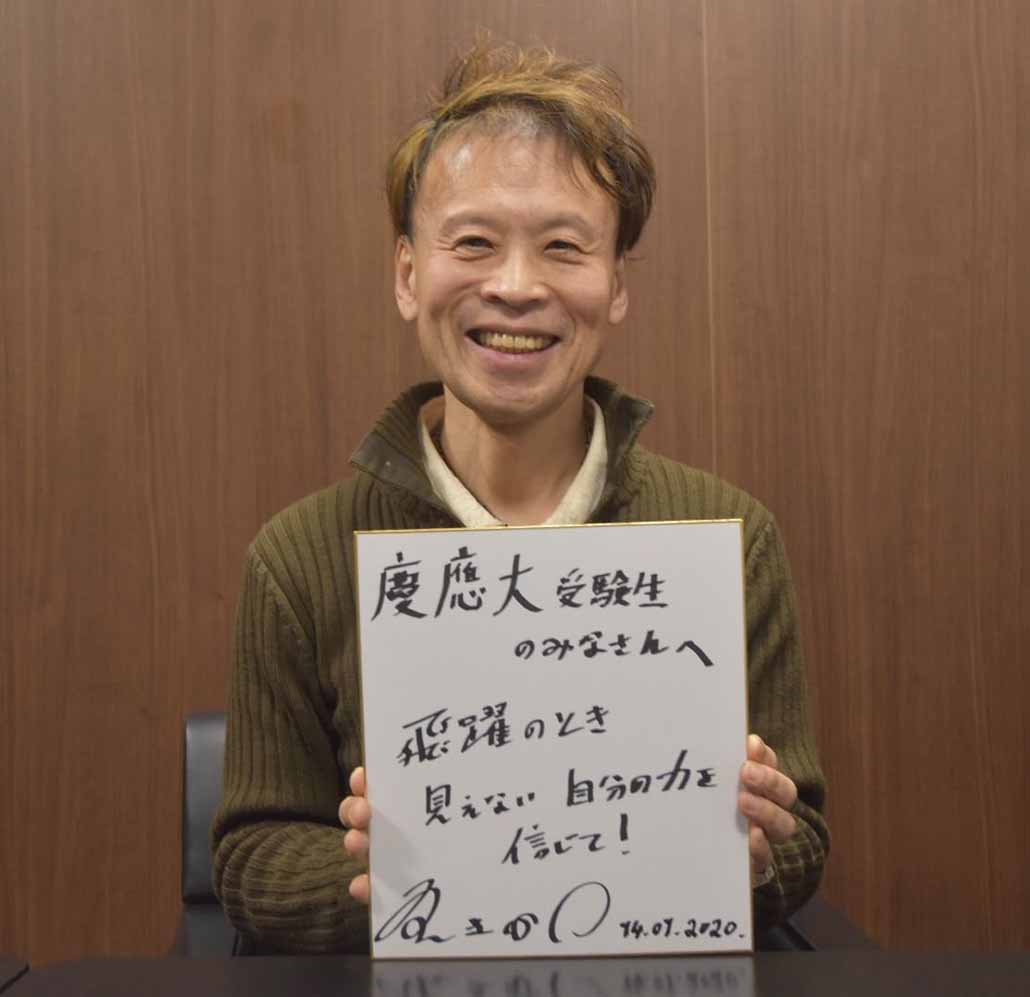 慶應大 受験生
のみなさんへ
飛躍のとき
見えない 自分の力を
信じて!
14.01.2020.